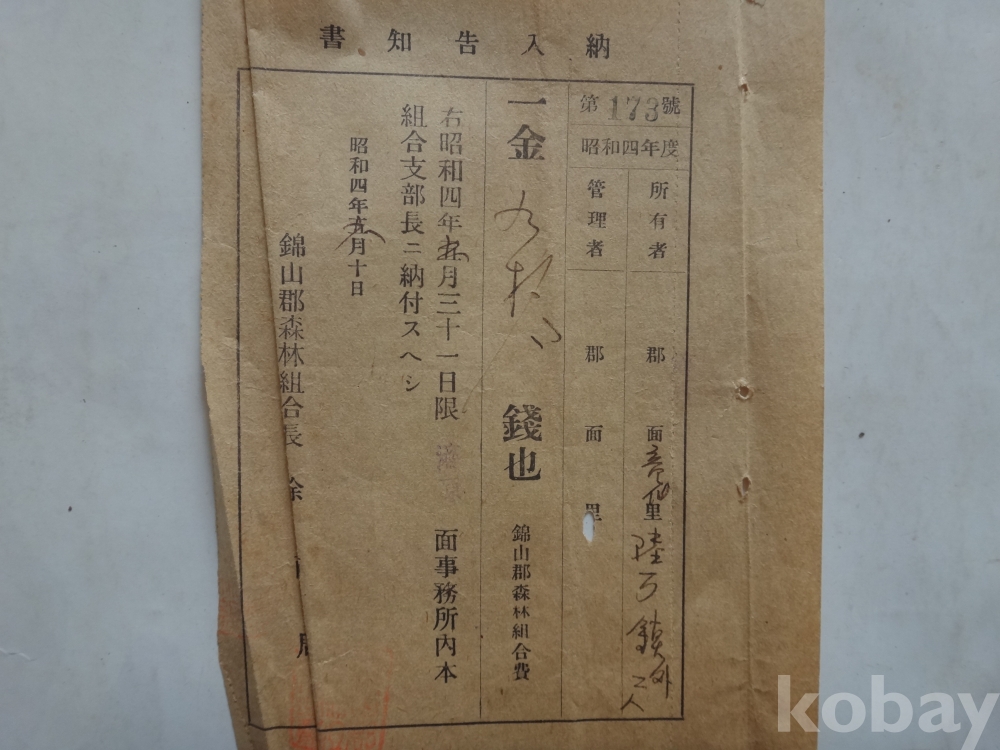 納入告知書
第173號
昭和四年度
所有者 郡 面 里 外二人
管理者 郡 面 里
一金 錢也
錦山郡森林組合費
右昭和四年 月三十一日限 面事務所內本
組合支部長ニ納付スヘシ
昭和四年 月十日
錦山郡森林組合長
kobay